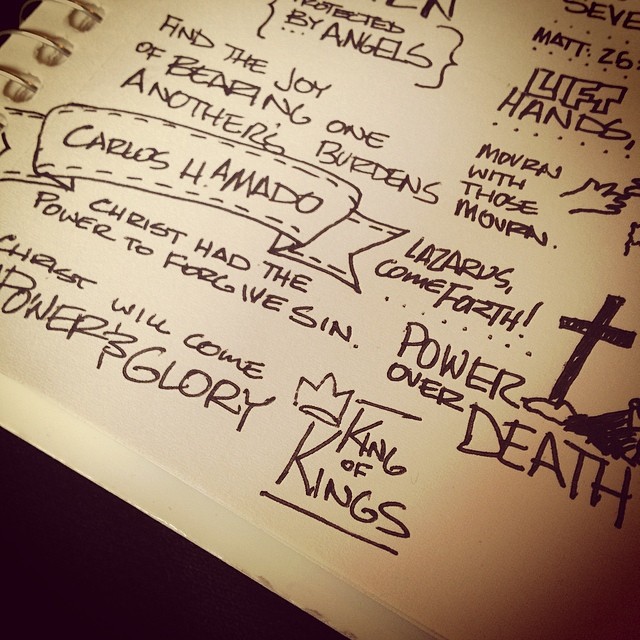 BY ANGELS
FIND THE JOY
OF BEARING ONE
ANOTHER'S BURDENS
CARLOS H. AMADO
CHRIST HAD THE
POWER TO FORGIVE SIN.
CHRIST WILL COME
POWER & GLORY
KING
OF
KINGS
SEVE
MATT. 26:
LIFT
HANDS,
MOURN
WITH
THOSE
MOURN.
LAZARUS,
COME FORTH!
POWER
OVER
DEATH